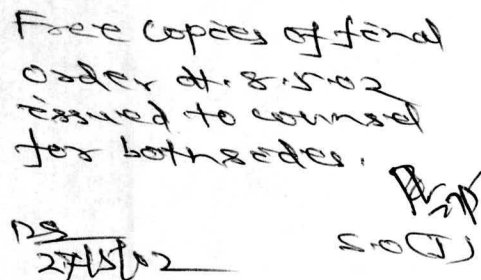 Free copies of final
order dt. 8.5.02
issued to counsel
for both sides.
27/5/02
S.O (J)